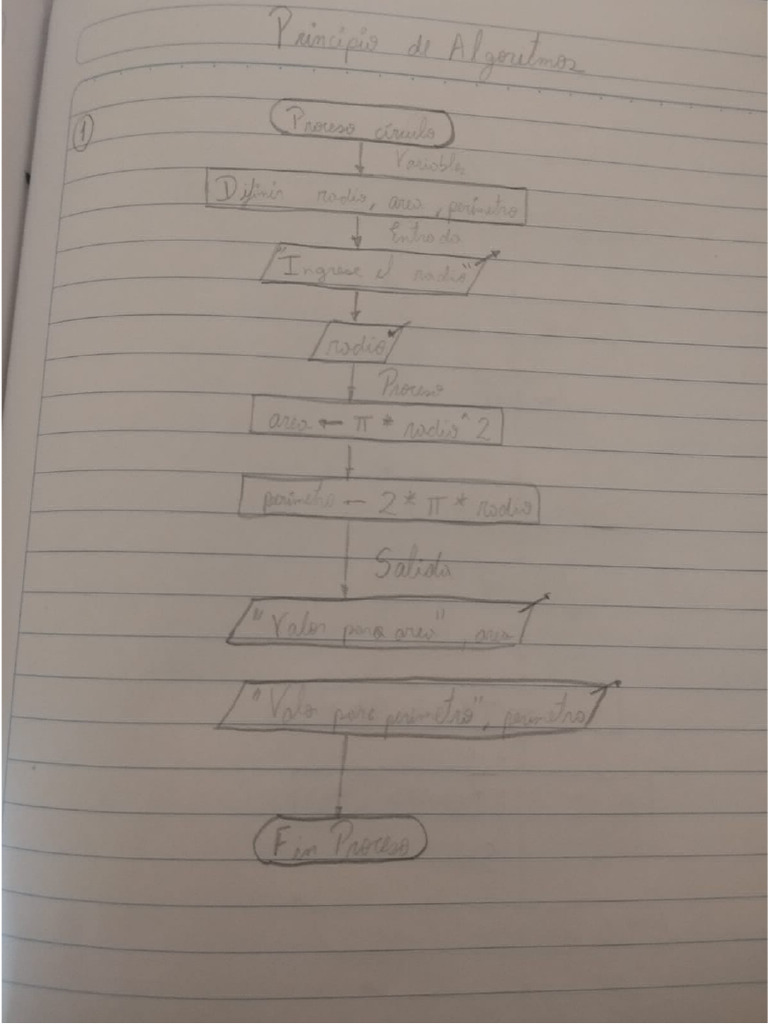 Principio de Algoritmos
1
Proceso círculo
Variables
Difinir radio, area, perímetro
Entrada
"Ingrese el radio"
radio
Proceso
area ← π * radio ^ 2
perimetro ← 2 * π * radio
Salida
"Valor para area", area
"Valo para perimetro", perimetro
Fin Proceso